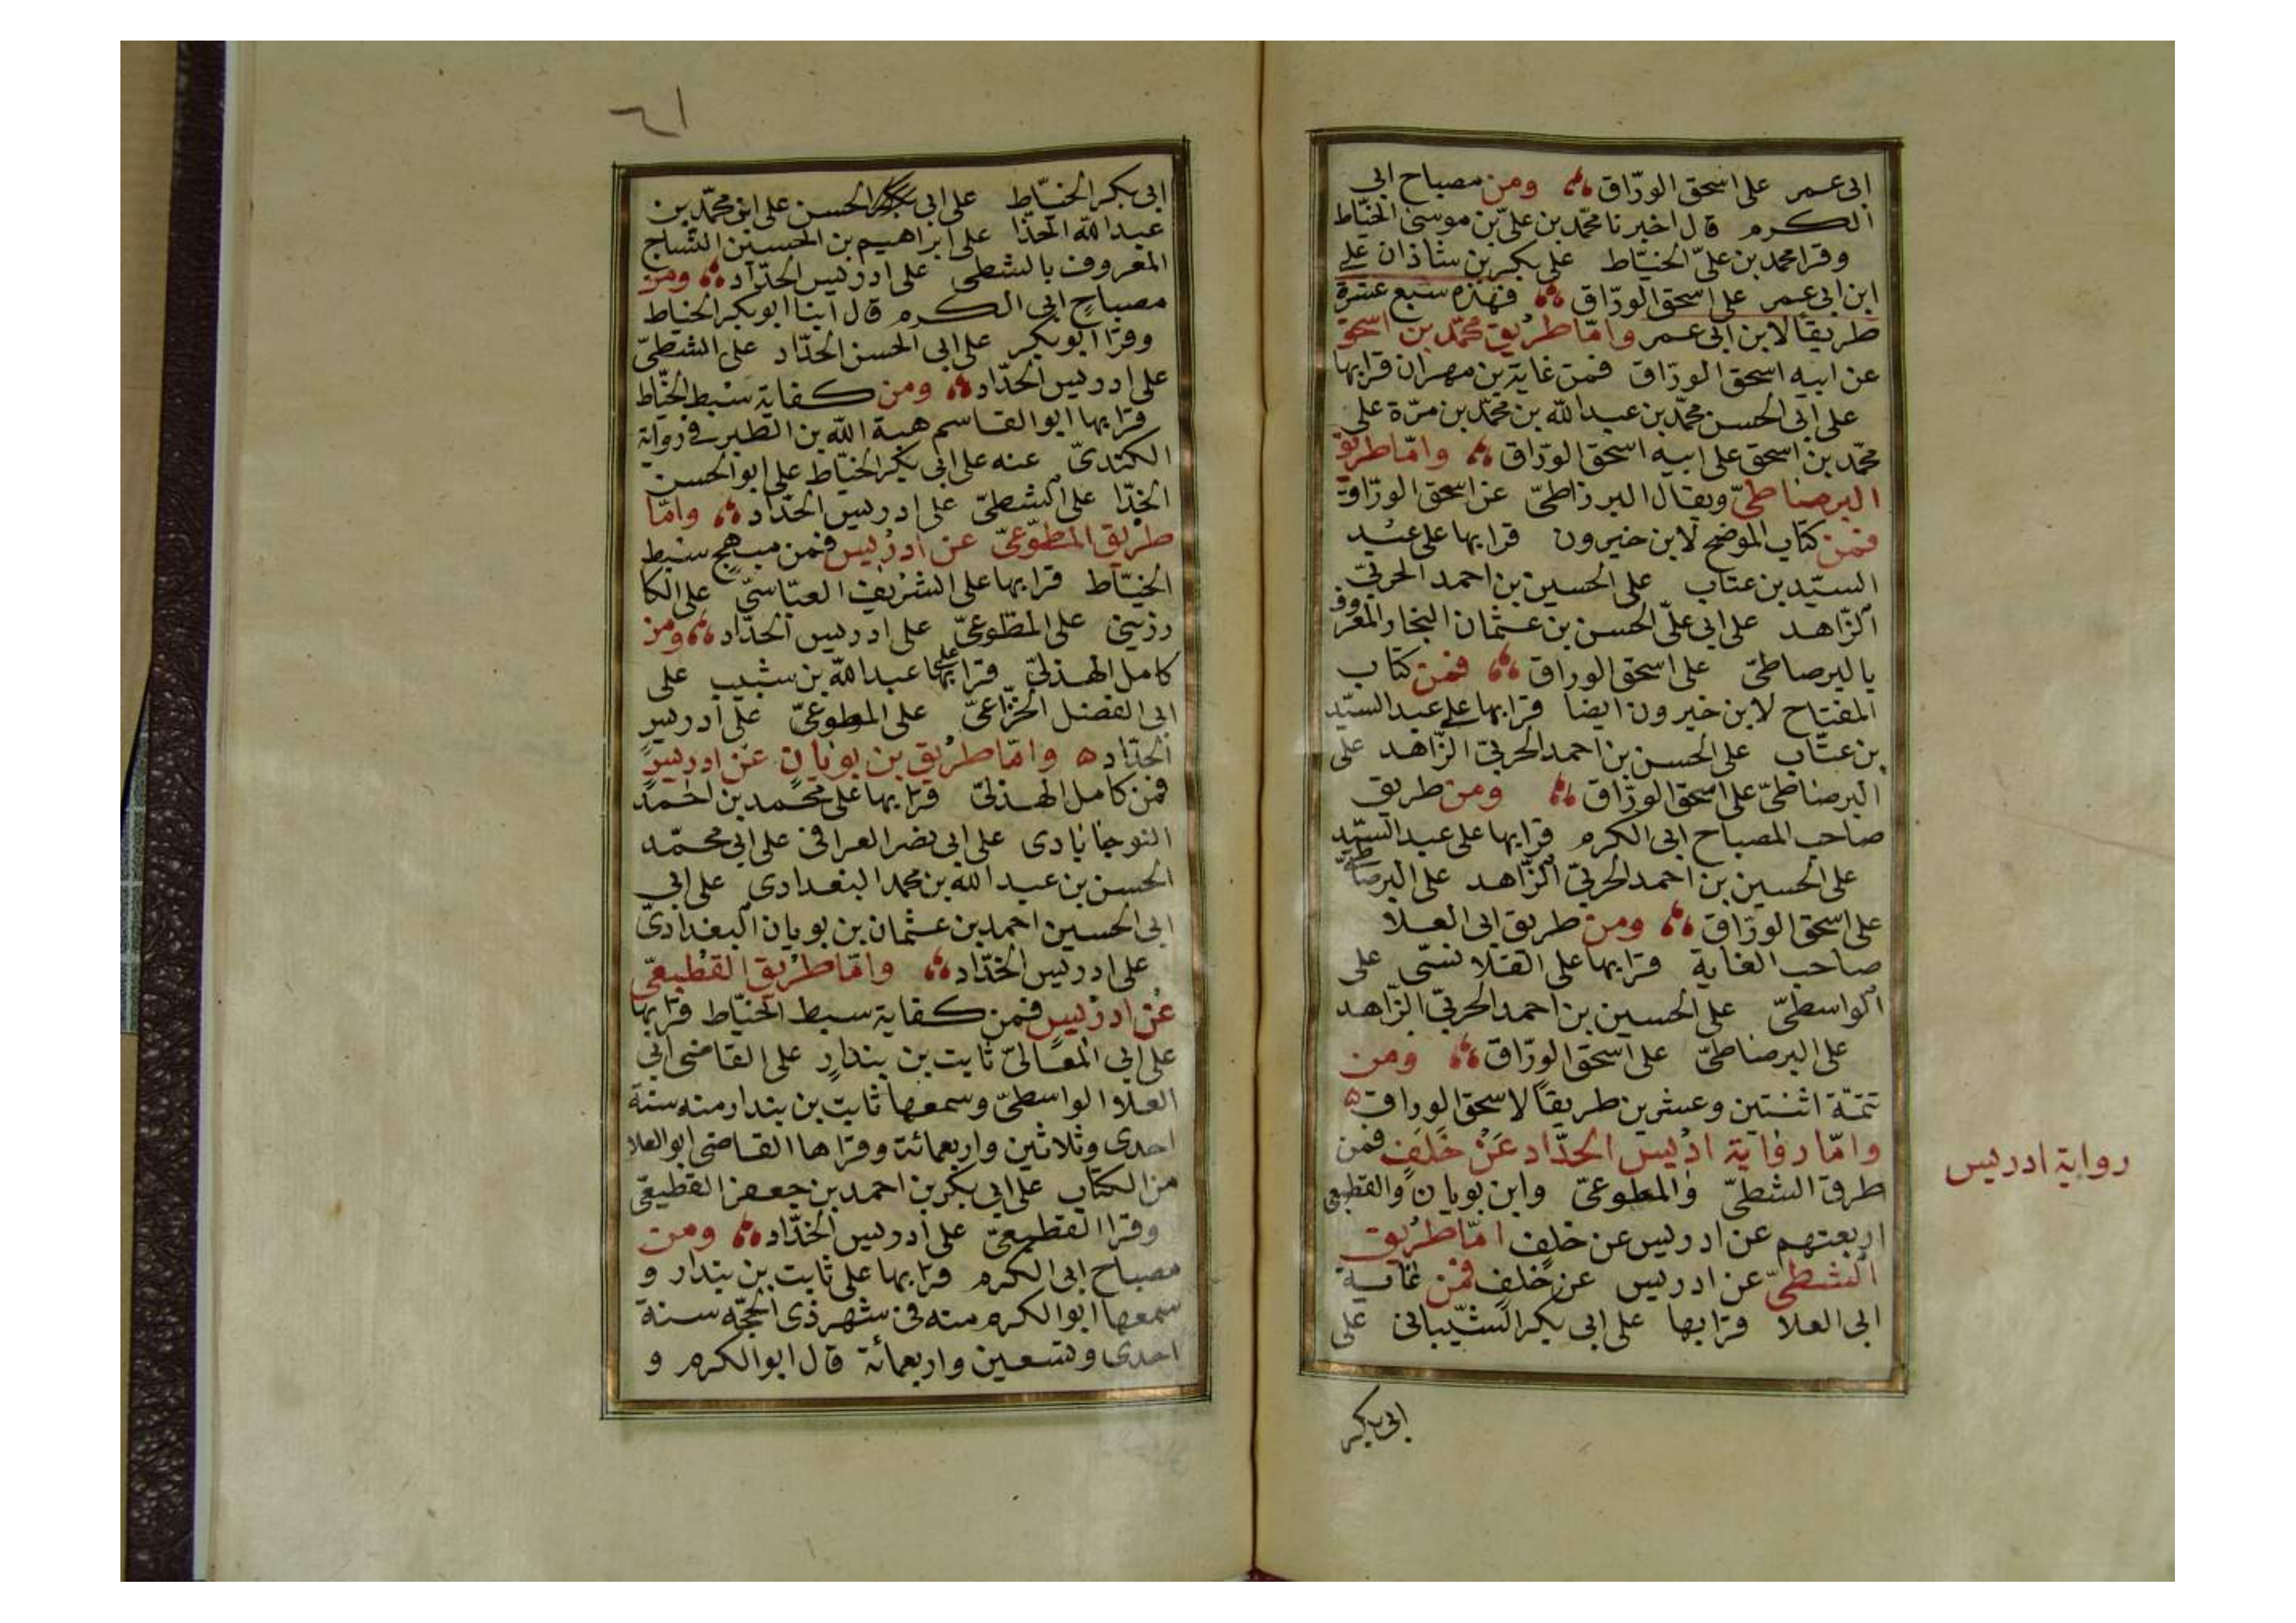 ابى عمر على اسحق الورّاق ومن مصباح ابى
الكرم قال اخبرنا محمّد بن علىّ بن موسى الخيّاط
وقرا محمد بن علىّ الخيّاط على بكر بن شاذان على
ابن ابى عمر على اسحق الورّاق فهذه سبع عشرة
طريقًا لابن ابى عمر وامّا طريق محمّد بن اسحق
عن ابيه اسحق الورّاق فمن غاية بن مهران قرا بها
على ابى الحسن محمّد بن عبد الله بن محمّد بن مرّة على
محمّد بن اسحق على ابيه اسحق الورّاق وامّا طريق
البرصاطىّ ويقال البرزاطىّ عن اسحق الورّاق
فمن كتاب الموضح لابن خيرون قرا بها على عبد
السيّد بن عتاب على الحسين بن احمد الحربىّ
الزّاهد على ابى علىّ الحسن بن عثمان النجار المعروف
بالبرصاطىّ على اسحق الوراق فمن كتاب
المفتاح لابن خيرون ايضا قرا بها على عبد السيّد
بن عتّاب على الحسن بن احمد الحربىّ الزّاهد على
البرصاطىّ على اسحق الورّاق ومن طريق
صاحب المصباح ابى الكرم قرا بها على عبد السيّد
على الحسين بن احمد الحربىّ الزّاهد على البرصاطىّ
على اسحق الورّاق ومن طريق ابى العلا
صاحب الغاية قرا بها على القلانسّى على
الواسطىّ على الحسين بن احمد الحربىّ الزّاهد
على البرصاطىّ على اسحق الورّاق ومن
تتمّة اثنتين وعشرين طريقاً لاسحق الوراق ه
وامّا رواية ادريس الحدّاد عن خلف فمن
طرق الشطىّ والمطوعىّ وابن بويان والقطيعى
اربعتهم عن ادريس عن خلف امّا طريق
الشطىّ عن ادريس عن خلف فمن غاية
ابى العلا قرا بها على ابى بكر الشّيبانى على
ابى بكر
رواية ادريس
٦١
ابى بكر الخيّاط على ابى الحسن على ابن محمّد بن
عبد الله الحذا على ابراهيم بن الحسين النسّاج
المعروف بالشطى على ادريس الحدّاد ومن
مصباح ابى الكرم قال ابنا ابو بكر الخياط
وقرا ابو بكر على ابى الحسن الحدّاد على الشطىّ
على ادريس الحدّاد ومن كفاية سبط الخيّاط
قرا بها ابو القاسم هبة الله بن الطبر فى رواية
الكندىّ عنه على ابى بكر الخيّاط على ابو الحسن
الخدّا على الشطىّ على ادريس الحدّاد وامّا
طريق المطّوّعىّ عن ادريس فمن مبهج سبط
الخيّاط قرا بها على الشريف العبّاسىّ على الكا
رزينى على المطّوعىّ على ادريس الحدّاد ومن
كامل الهذلىّ قرا بها على عبد الله بن شبيب على
ابى الفضل الخزّاعىّ على المطوعىّ على ادريس
الحدّاد ه وامّا طريق بن بويان عن ادريس
فمن كامل الهذلىّ قرا بها على محمد بن احمد
النوجابادى على ابى نصر العراقى على ابى محمّد
الحسن بن عبد الله بن محمد البغدادى على ابى
ابى الحسين احمد بن عثمان بن بويان البغدادىّ
على ادريس الحدّاد وامّا طريق القطيعىّ
عن ادريس فمن كفاية سبط الخيّاط قرا بها
على ابى المعالىّ ثابت بن بندار على القاضى ابى
العلا الواسطىّ وسمعها ثابت بن بندار منه سنة
احدى وثلاثين واربعمائة وقرا ها القاضى ابو العلا
من الكتاب على ابى بكر بن احمد بن جعفر القطيعى
وقرا القطيعىّ على ادريس الحدّاد ومن
مصباح ابى الكرم قرا بها على ثابت بن بندار و
سمعها ابو الكرم منه فى شهر ذى الحجّه سنة
احدى وتسعين واربعمائة قال ابو الكرم و